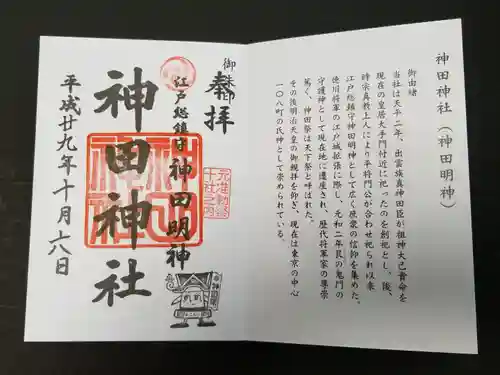 神田神社(神田明神)
御由緒
当社は天平二年、出雲族真神田臣が祖神大己貴命を
現在の皇居大手門付近に祀ったのを創祀とし、後、
時宗真教上人により平将門公が合わせ祀られ以来
江戸総鎮守神田明神として広く庶衆の信仰を集めた。
徳川将軍の江戸城拡張に際し、元和二年艮の鬼門の
守護神として現在地に遷座され、歴代将軍家の尊崇
篤く、神田祭は天下祭と呼ばれた。
その後明治天皇の御親拝を仰ぎ、現在は東京の中心
一〇八町の氏神として崇められている。
御朱印
奉拝
元准勅祭
十社之内
江戸総鎮守 神田明神
神田神社
平成廿九年十月六日